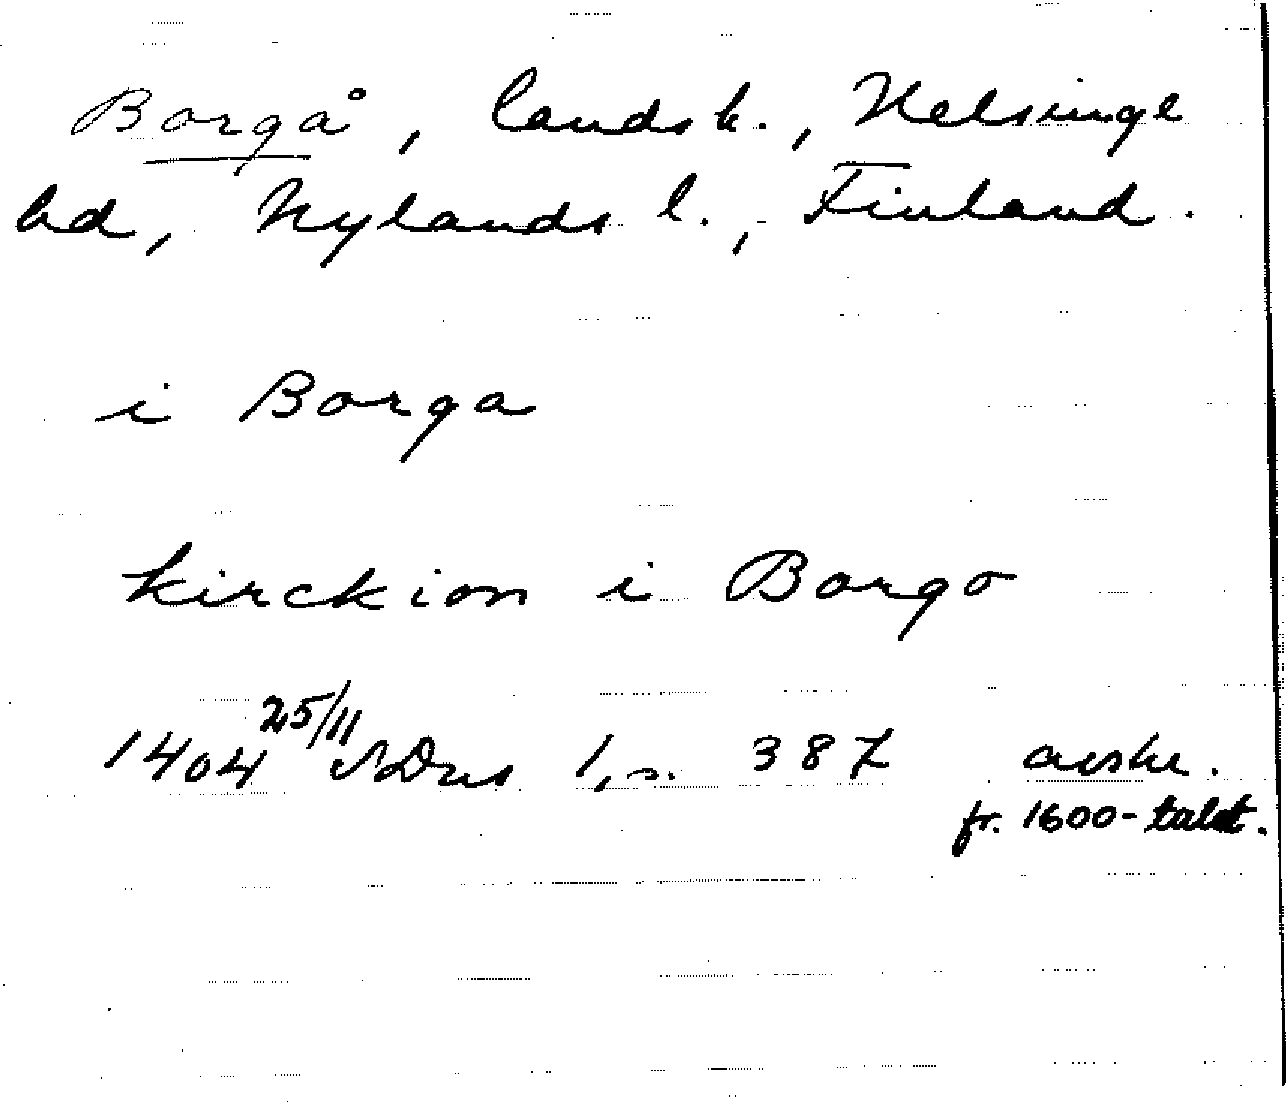 Borgå, landsk., Helsinge
hd, Nylands l., Finland.
i Borga
kirckion i Borgo
1404 25/11 SDns 1, s. 387 avskr.
fr. 1600-talet.